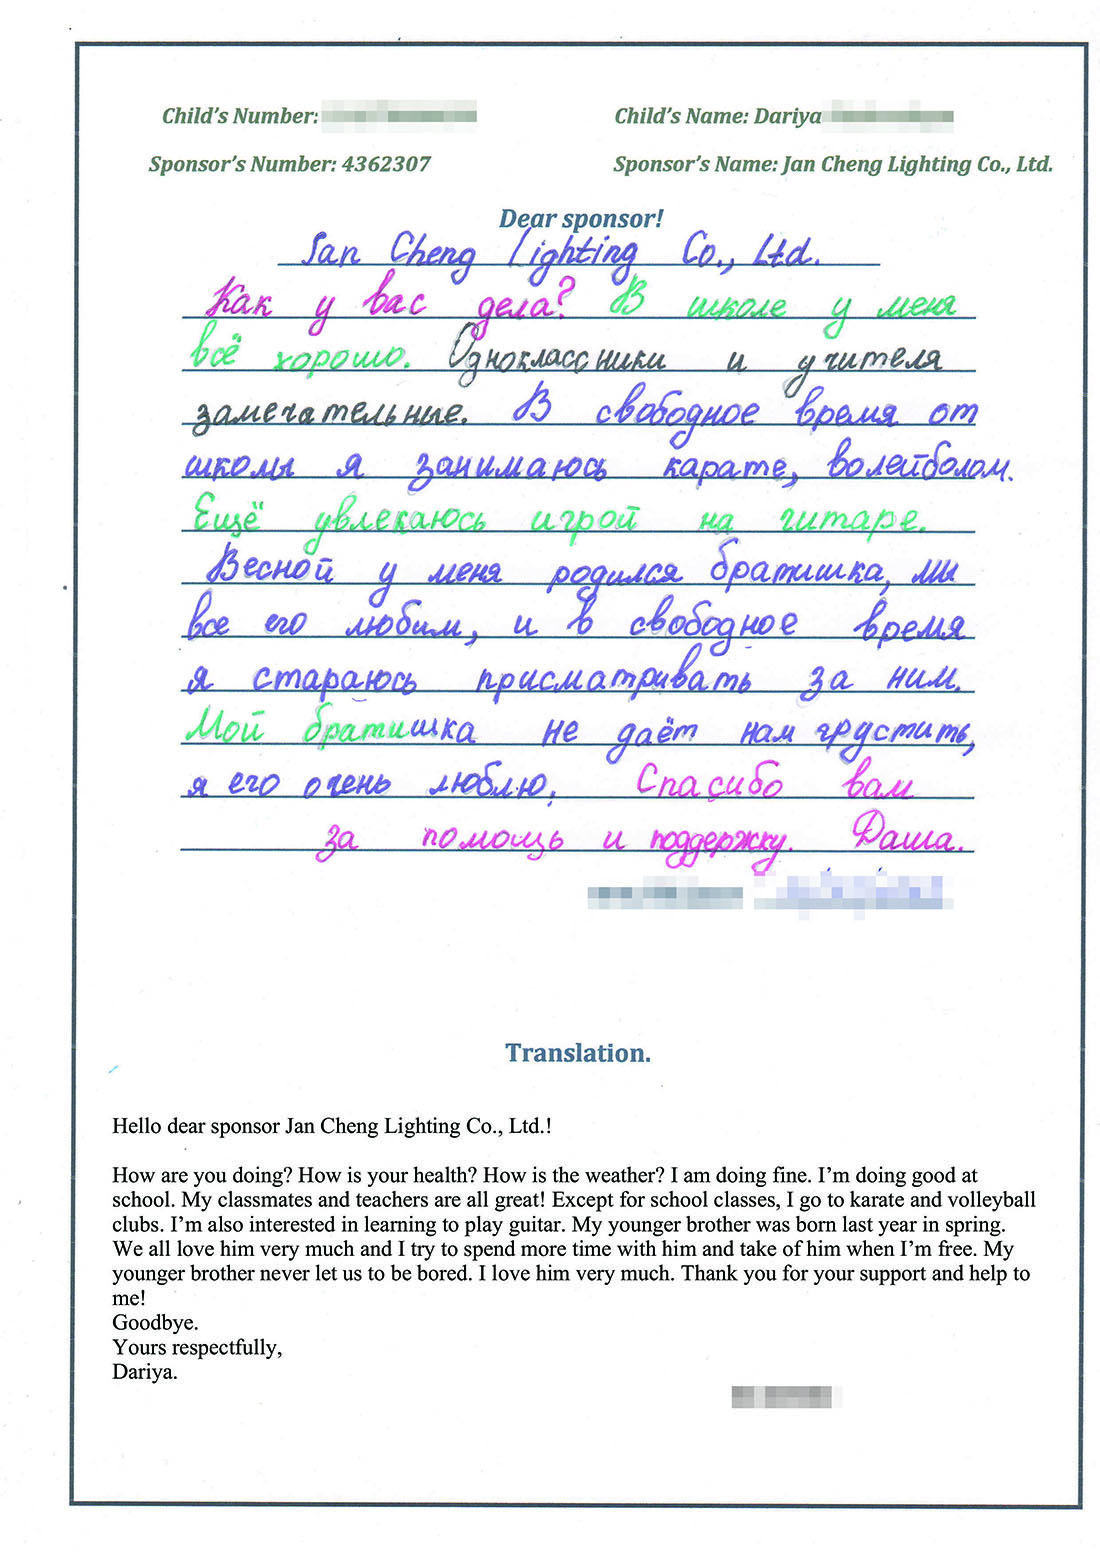 Child's Number:
Child's Name: Dariya
Sponsor's Number: 4362307
Sponsor's Name: Jan Cheng Lighting Co., Ltd.
Dear sponsor!
Jan Cheng Lighting Co., Ltd.
Как у вас дела? В школе у меня
всё хорошо. Одноклассники и учителя
замечательные. В свободное время от
школы я занимаюсь карате, волейболом.
Ещё увлекаюсь игрой на гитаре.
Весной у меня родился братишка, мы
все его любим, и в свободное время
я стараюсь присматривать за ним.
Мой братишка не даёт нам грустить,
я его очень люблю. Спасибо вам
за помощь и поддержку. Даша.
Translation.
Hello dear sponsor Jan Cheng Lighting Co., Ltd.!
How are you doing? How is your health? How is the weather? I am doing fine. I'm doing good at
school. My classmates and teachers are all great! Except for school classes, I go to karate and volleyball
clubs. I'm also interested in learning to play guitar. My younger brother was born last year in spring.
We all love him very much and I try to spend more time with him and take of him when I'm free. My
younger brother never let us to be bored. I love him very much. Thank you for your support and help to
me!
Goodbye.
Yours respectfully,
Dariya.